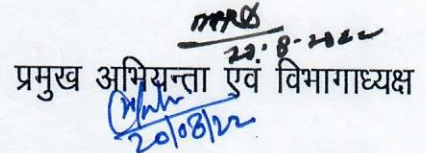 20.8.2022
प्रमुख अभियन्ता एवं विभागाध्यक्ष
20/08/22